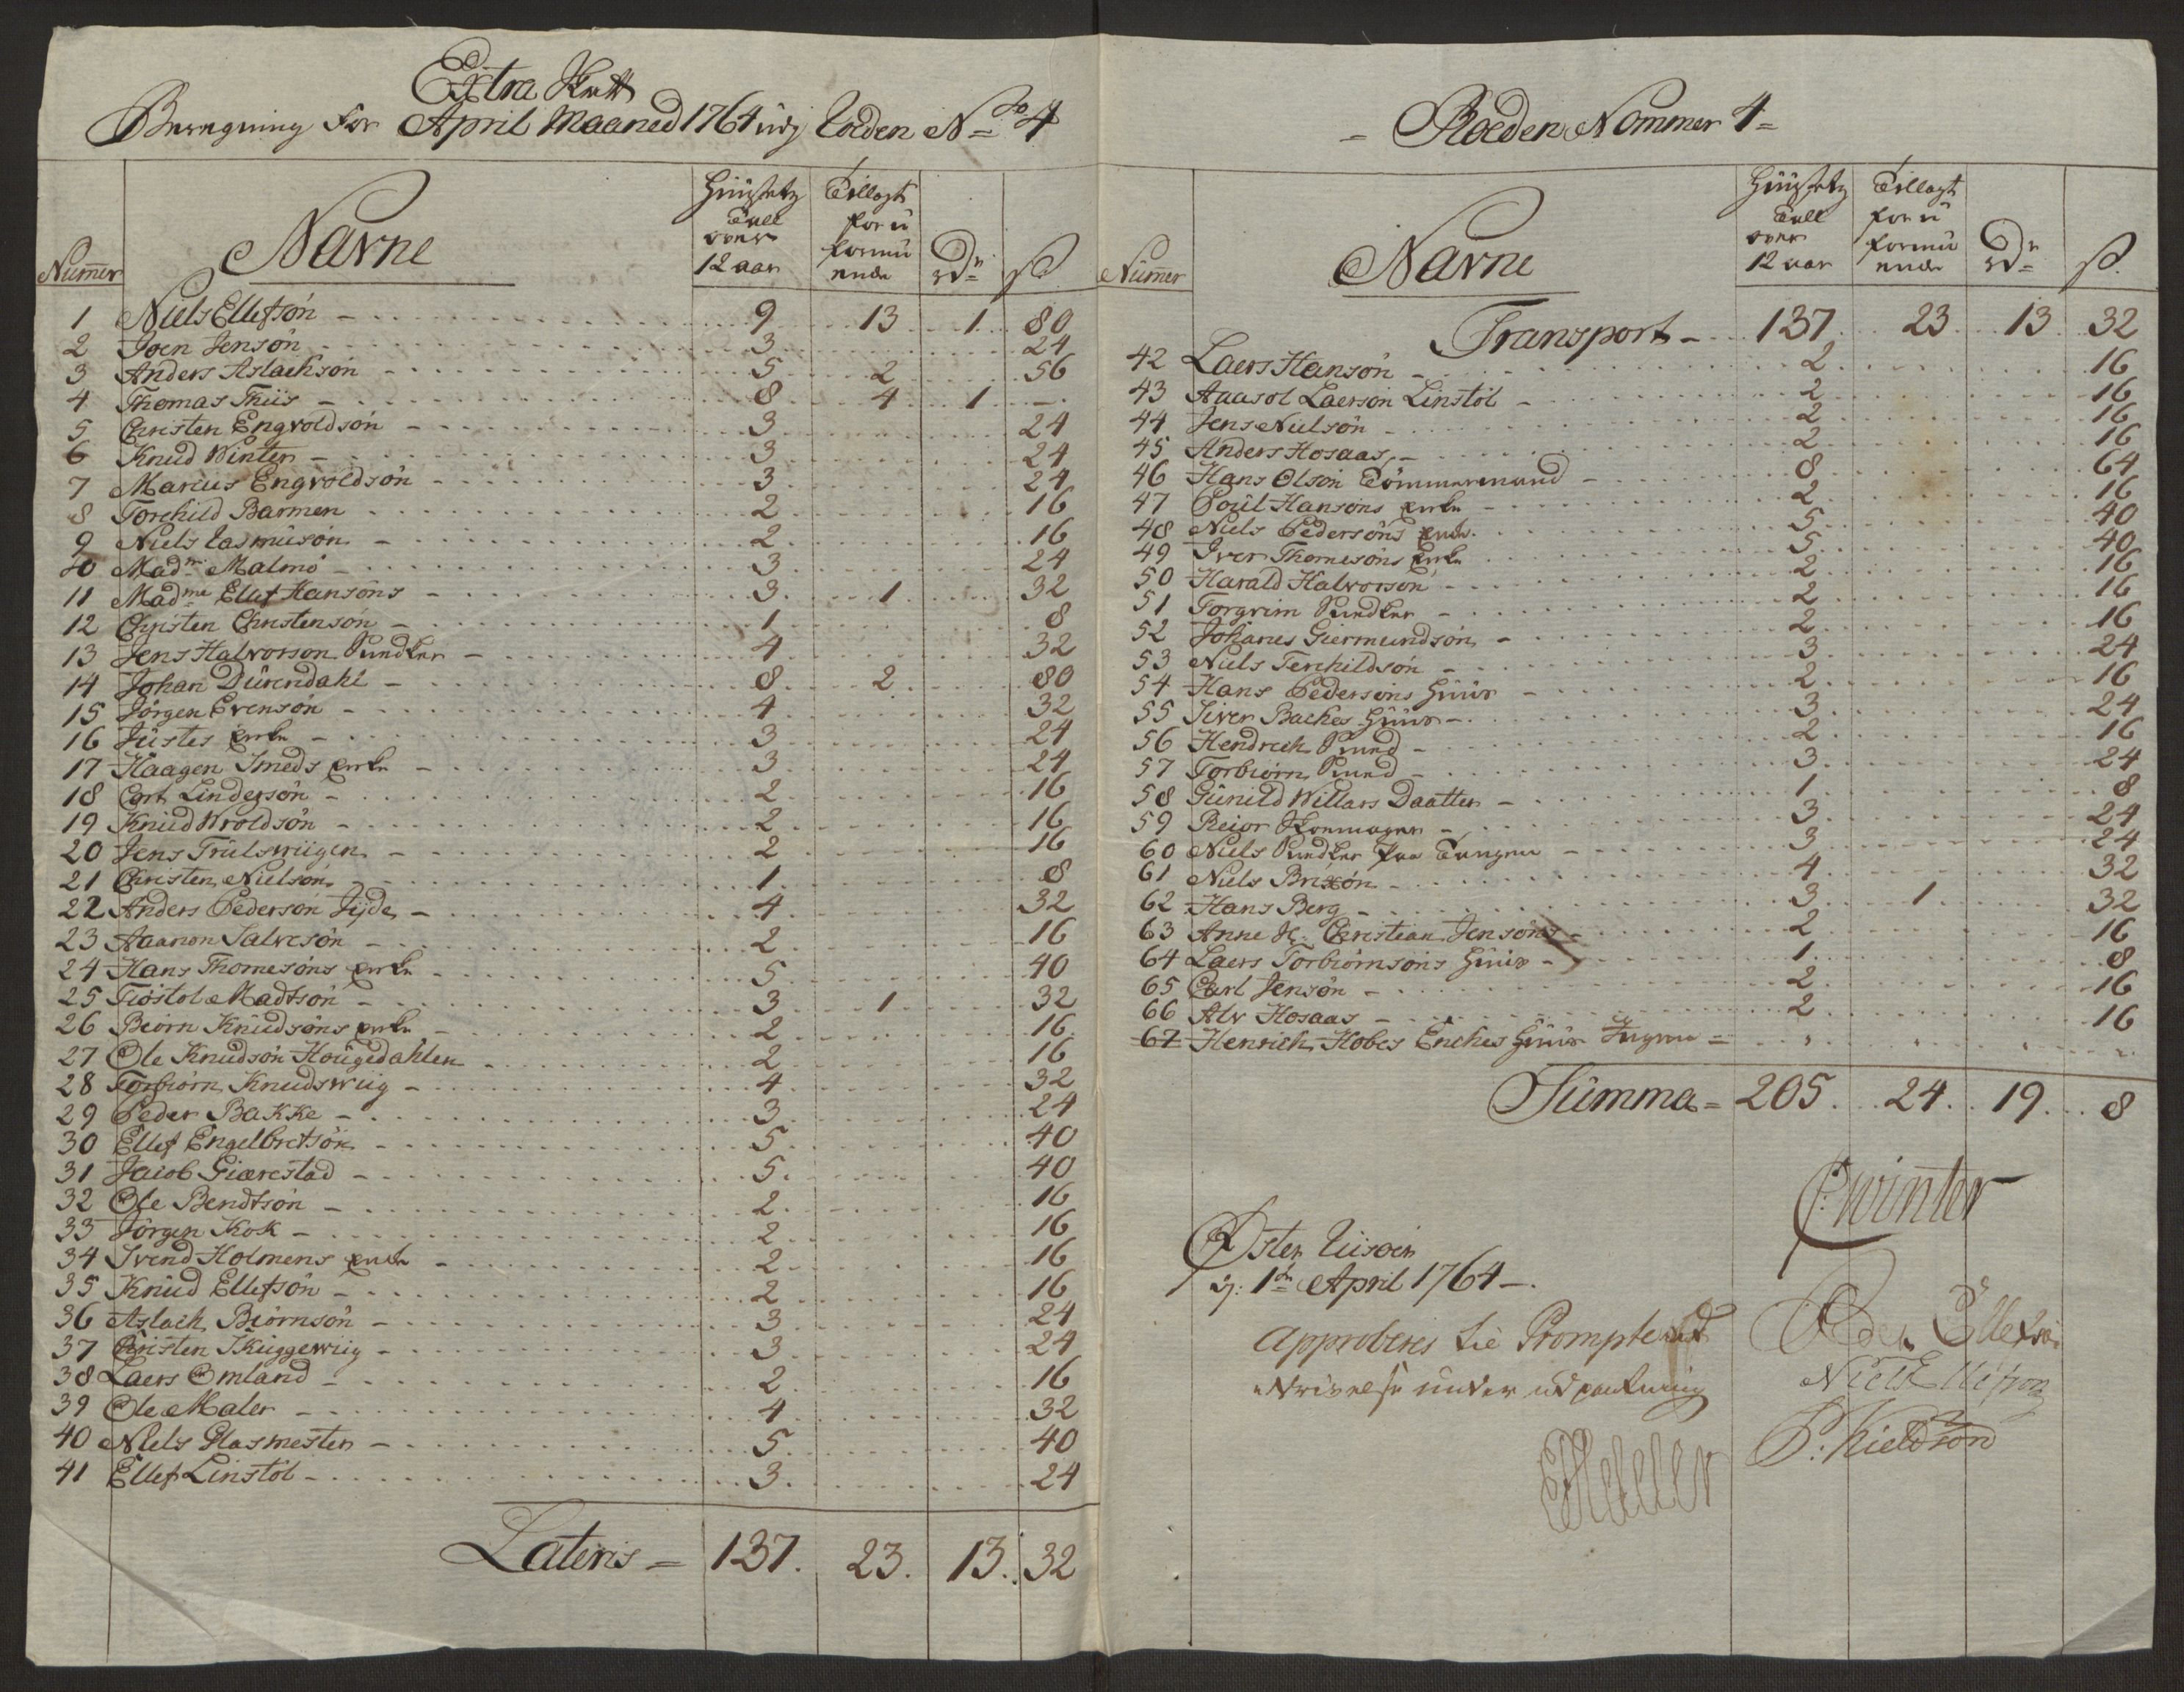 Extra Skatt
Beregning for April Maaned 1764 udj Roden No 4
Nummer Navne Huusets Tall over 12 aar Tillagt for u formu ende Rdr ß
1 Niels Ellefsön - 9 13 1 80
2 Joen Jensön - 3 24
3 Anders Aslachsön - 5 2 56
4 Thomas Thiis - 8 4 1 -
5 Christen Engvoldsön - 3 24
6 Knud Winter - 3 24
7 Marius Engvoldsön - 3 24
8 Torchild Barmen 2 16
9 Niels Rasmusön - 2 16
10 Madm Malmö - 3 24
11 Madme Ellef Hansöns - 3 1 32
12 Christen Christensön - 1 8
13 Jens Halvorson Snedker - 4 32
14 Johan Dürendahl - 8 2 80
15 Jörgen Evensön - 4 32
16 Justes Enke - 3 24
17 Haagen Smeds Enke - 3 24
18 Carl Lindegsön - 2 16
19 Knud Wroldsön - 2 16
20 Jens Trulswiigen - 2 16
21 Christen Nielsön - 1 8
22 Anders Pederson Fyde - 4 32
23 Aaanon Salvesön - 2 16
24 Hans Thomesöns Enke 5 40
25 Tiöstol Madtsön - 3 1 32
26 Beiörn Knudsöns Enke - 2 16
27 Ole Knudsön Hougedahlen 2 16
28 Torbiörn Knudswiig - 4 32
29 Peder Bakke - 3 24
30 Ellef Engelbretsön - 5 40
31 Jacob Giærestad - 5 40
32 Ole Bendtsön - 2 16
33 Jörgen Kok - 2 16
34 Svend Holmens Enke - 2 16
35 Knud Ellefsön - 2 16
36 Aslach Biörnsön - 3 24
37 Christen Skuggewiig - 3 24
38 Laers Omland - 2 16
39 Ole Maler - 4 32
40 Niels Glasmester - 5 40
41 Ellef Linstöl - 3 24
Lateris = 137. 23. 13. 32
- Roeden Nommer 4 =
Nummer Navne Huusets Tall over 12 aar Tillagt for u formu ende Rdr ß
Transport - 137. 23. 13. 32
42 Laers Hansön - 2 16
43 Aaasol Laersön Linstöl - 2 16
44 Jens Nielsön - 2 16
45 Anders Hosaas - 2 16
46 Hans Olson Tömmermand - 8 64
47 Poul Hansöns Enke - 2 16
48 Niels Pedersöns Enke 5 40
49 Iver Thomesöns Enke 5 40
50 Harald Halvorsön 2 16
51 Torgrim Snedker - 2 16
52 Johanes Giermundsön - 2 16
53 Niels Terchildsön - 3 24
54 Hans Pedersons Huus - 2 16
55 Siver Baches Huus - 3 24
56 Hendrech Smed - 2 16
57 Torbiörn Smed - 3 24
58 Gunild Willars Daatter - 1 8
59 Reior Skoemager - 3 24
60 Niels Snedker paa Tangen - 3 24
61 Niels Brixön - 4 32
62 Hans Berg - 3 1 32
63 Anne Christian Jensöns - 2 16
64 Laers Torbiörnsöns Huus - 1 8
65 Carl Jensön - 2 16
66 Alv Hosaas - 2 16
67 Henrich Hobes Enches Huus Ingen =
Summa = 205. 24. 19. 8
Öster Riisöer
d: 1de April 1764 -
CWinter
Approberes til Prompte
under udpantning
Peder Ellefsön
Niels Ellefson
P: Kieldsön